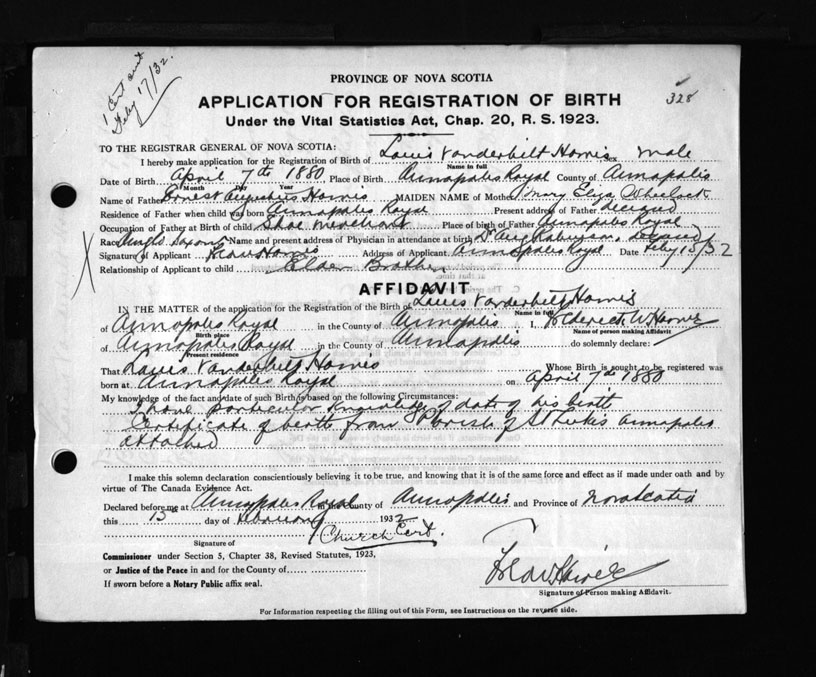 1 Cert sent
Feby 17/32.
328
PROVINCE OF NOVA SCOTIA
APPLICATION FOR REGISTRATION OF BIRTH
Under the Vital Statistics Act, Chap. 20, R. S. 1923.
TO THE REGISTRAR GENERAL OF NOVA SCOTIA:
I hereby make application for the Registration of Birth of Louis Vanderbilt Harris Sex male
Name in full
Date of Birth April 7th 1880 Place of Birth Annapolis Royal County of Annapolis
Month Day Year
Name of Father Ernest Augustus Harris MAIDEN NAME of Mother Mary Eliza Wheelock
Residence of Father when child was born Annapolis Royal Present address of Father deceased
Occupation of Father at Birth of child Shoe merchant Place of birth of Father Annapolis Royal
Race Anglo Saxon Name and present address of Physician in attendance at birth Dr Aug Robinson, Deceased
Signature of Applicant Harris Address of Applicant Annapolis Royal Date Feby 15/32
Relationship of Applicant to child Elder Brother
AFFIDAVIT
IN THE MATTER of the application for the Registration of the Birth of Louis Vanderbilt Harris
Name in full
of Annapolis Royal in the County of Annapolis I, Frederick W Harris
Birth place Name of person making Affidavit
of Annapolis Royal in the County of Annapolis do solemnly declare:
Present residence
That Louis Vanderbilt Harris Whose Birth is sought to be registered was
born at Annapolis Royal on April 7th 1880
My knowledge of the fact and date of such Birth is based on the following Circumstances:
I have particular knowledge of date of his birth
Certificate of birth from Parish of St Lukes Annapolis
attached
I make this solemn declaration conscientiously believing it to be true, and knowing that it is of the same force and effect as if made under oath and by
virtue of The Canada Evidence Act.
Declared before me at Annapolis Royal in the County of Annapolis and Province of Nova Scotia
this 15th day of February 1932
Church Cert.
Signature of
Commissioner under Section 5, Chapter 38, Revised Statutes, 1923,
or Justice of the Peace in and for the County of
If sworn before a Notary Public affix seal.
Fred W Harris
Signature of Person making Affidavit.
For Information respecting the filling out of this Form, see Instructions on the reverse side.